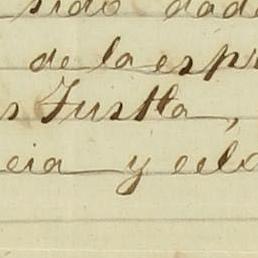 sido dad
de la esp
s Tustla,
cia y celo